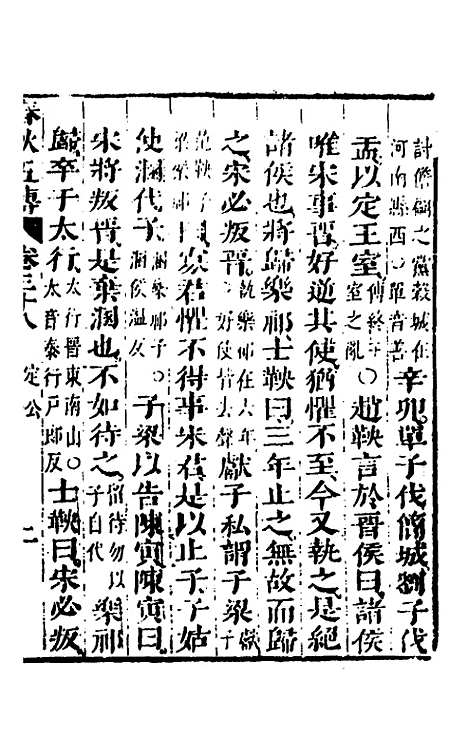 討儋翩之黨穀城在河南縣西○單音善辛卯單子伐簡城劉子伐
盂以定王室傳終王室之亂○趙鞅言於晉侯曰諸侯
唯宋事晉好逆其使猶懼不至今又執之是絕
諸侯也將歸樂祁士鞅曰三年止之無故而歸
之宋必叛晉執樂祁在六年好使皆去聲獻子私謂子梁獻子
范鞅子梁樂祁曰寡君懼不得事宋君是以止子子姑
使溷代子溷樂祁子○溷侯温反子梁以告陳寅陳寅曰
宋將叛晉是棄溷也不如待之留待勿以子自代樂祁
歸卒于太行太行晉東南山○太音泰行戸郎反士鞅曰宋必叛
春秋左傳 卷三十八 定公 二